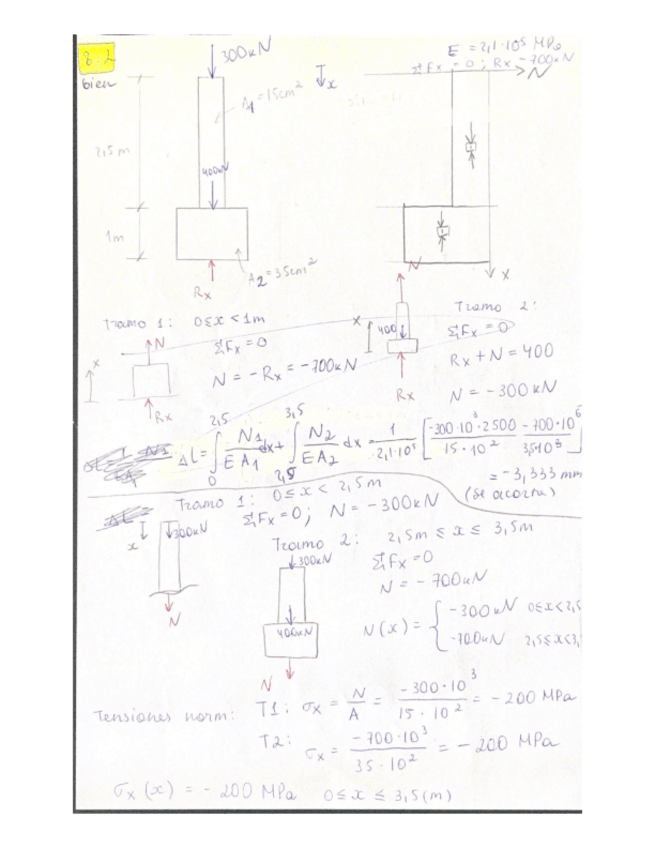 8.2
bien
300kN
E = 2,1·10⁵ MPa
ΣFx = 0 ; Rx = 700kN
N
x
A₁=15cm²
2,5m
400kN
1m
A₂=35cm²
Rx
x
N
Tramo 1: 0≤x<1m
N
ΣFx=0
x
N = -Rx = -700kN
Rx
x
400
Rx
Tramo 2:
ΣFx=0
Rx+N=400
N = -300kN
Δl = ∫₀^2,5 N1/EA1 dx + ∫_2,5^3,5 N2/EA2 dx = 1/2,1·10⁵ [-300·10³·2500/15·10² -700·10⁶/35·10³]
= -3,333 mm
(se acorta)
Tramo 1: 0≤x<2,5m
ΣFx=0; N=-300kN
x
300kN
N
Tramo 2: 2,5m ≤ x ≤ 3,5m
300kN
ΣFx=0
N = -700kN
400kN
N
N(x) = { -300kN 0≤x<2,5
-700kN 2,5≤x≤3,
Tensiones norm: T1: σx = N/A = -300·10³/15·10² = -200 MPa
T2: σx = -700·10³/35·10² = -200 MPa
σx(x) = -200 MPa 0≤x≤3,5(m)